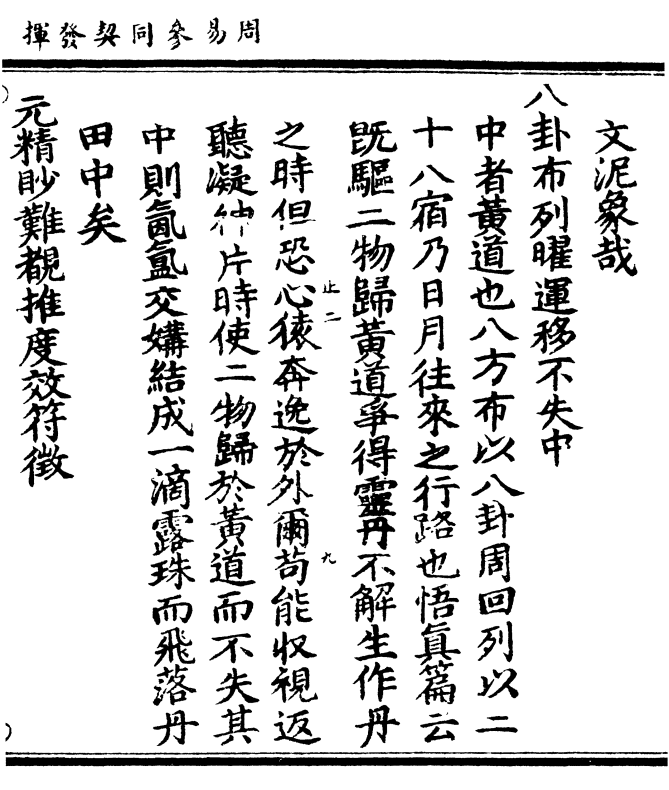 周易參同契發揮
文泥象哉
八卦布列曜運移不失中
中者黃道也八方布以八卦周回列以二
十八宿乃日月往來之行路也悟眞篇云
旣驅二物歸黃道爭得靈丹不解生作丹
之時但恐心猿奔逸於外爾苟能收視返
止二
九
聽凝神片時使二物歸於黃道而不失其
中則氤氳交媾結成一滴露珠而飛落丹
田中矣
元精眇難覩推度效符徵